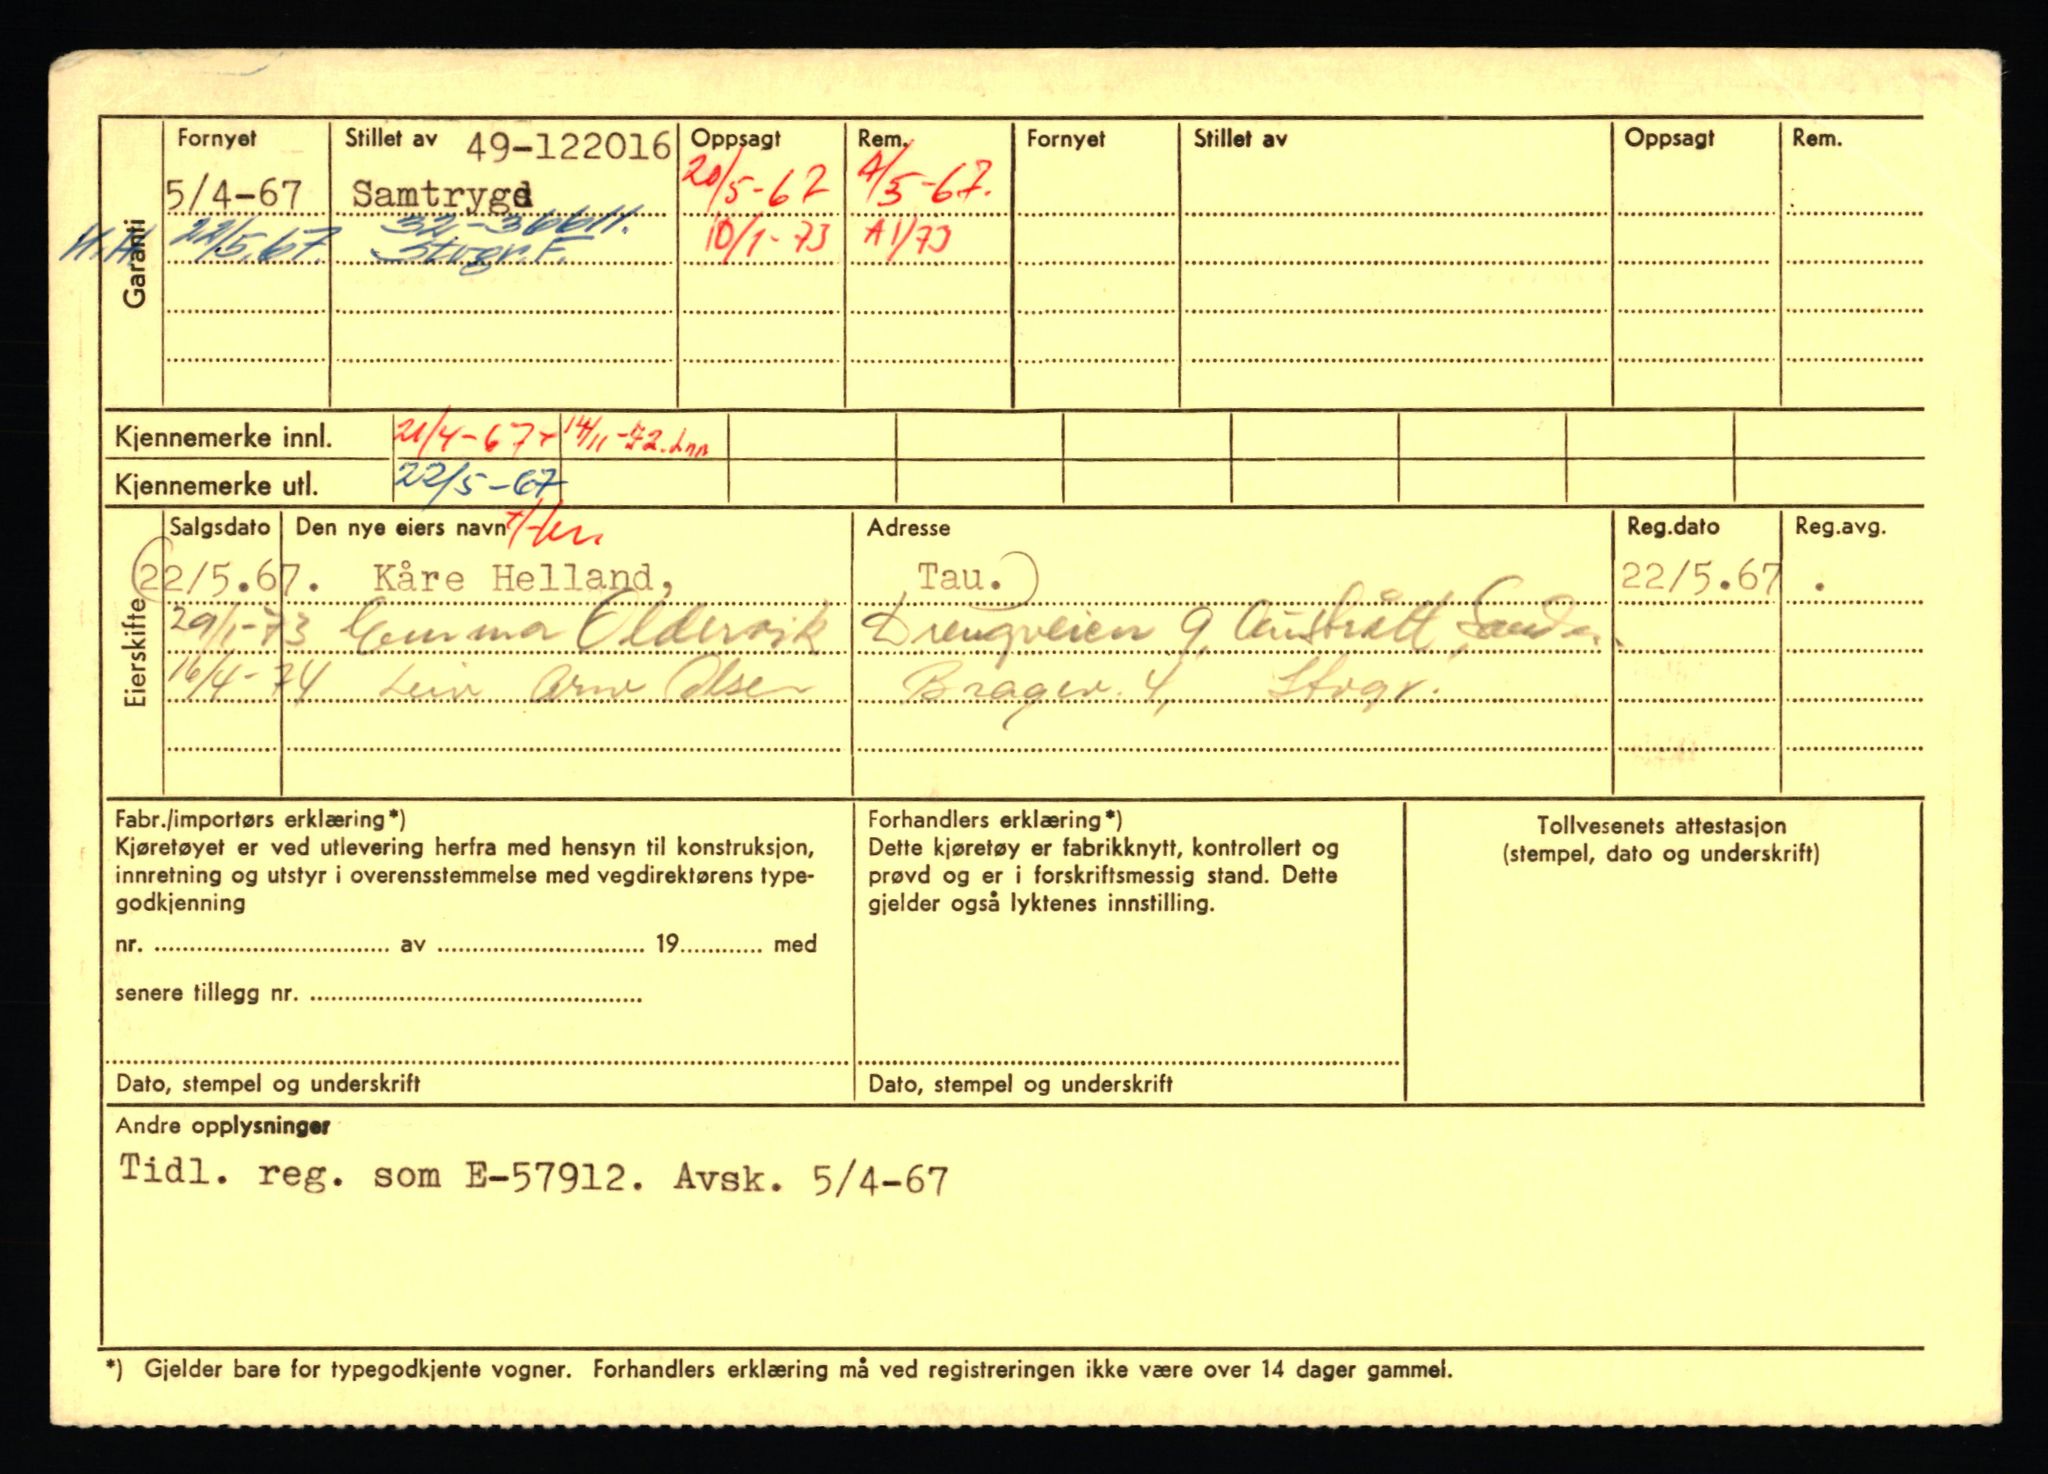 Garanti
Fornyet Stillet av 49-122016 Oppsagt Rem. Fornyet Stillet av Oppsagt Rem.
5/4-67 Samtrygd 20/5-67 4/5-67.
H.H. 22/5.67. 32-36611. Stvgr. F. 10/1-73 A1/73
Kjennemerke innl. 21/4-67 14/11-72
Kjennemerke utl. 22/5-67
Eierskifte
Salgsdato Den nye eiers navn Adresse Reg.dato Reg.avg.
(22/5.67. Kåre Helland, Tau.) 22/5.67 .
29/1-73 Gunnar Oldervik Drengveien 9, Austrått, Sandn.
16/4-74 Leiv Arne Olsen Bragev. 4, Stvgr.
Fabr./importørs erklæring*)
Kjøretøyet er ved utlevering herfra med hensyn til konstruksjon,
innretning og utstyr i overensstemmelse med vegdirektørens type-
godkjenning
nr. ........ av ........ 19........ med
senere tillegg nr. ........
Dato, stempel og underskrift
Forhandlers erklæring*)
Dette kjøretøy er fabrikknytt, kontrollert og
prøvd og er i forskriftsmessig stand. Dette
gjelder også lyktenes innstilling.
Dato, stempel og underskrift
Tollvesenets attestasjon
(stempel, dato og underskrift)
Andre opplysninger
Tidl. reg. som E-57912. Avsk. 5/4-67
*) Gjelder bare for typegodkjente vogner. Forhandlers erklæring må ved registreringen ikke være over 14 dager gammel.